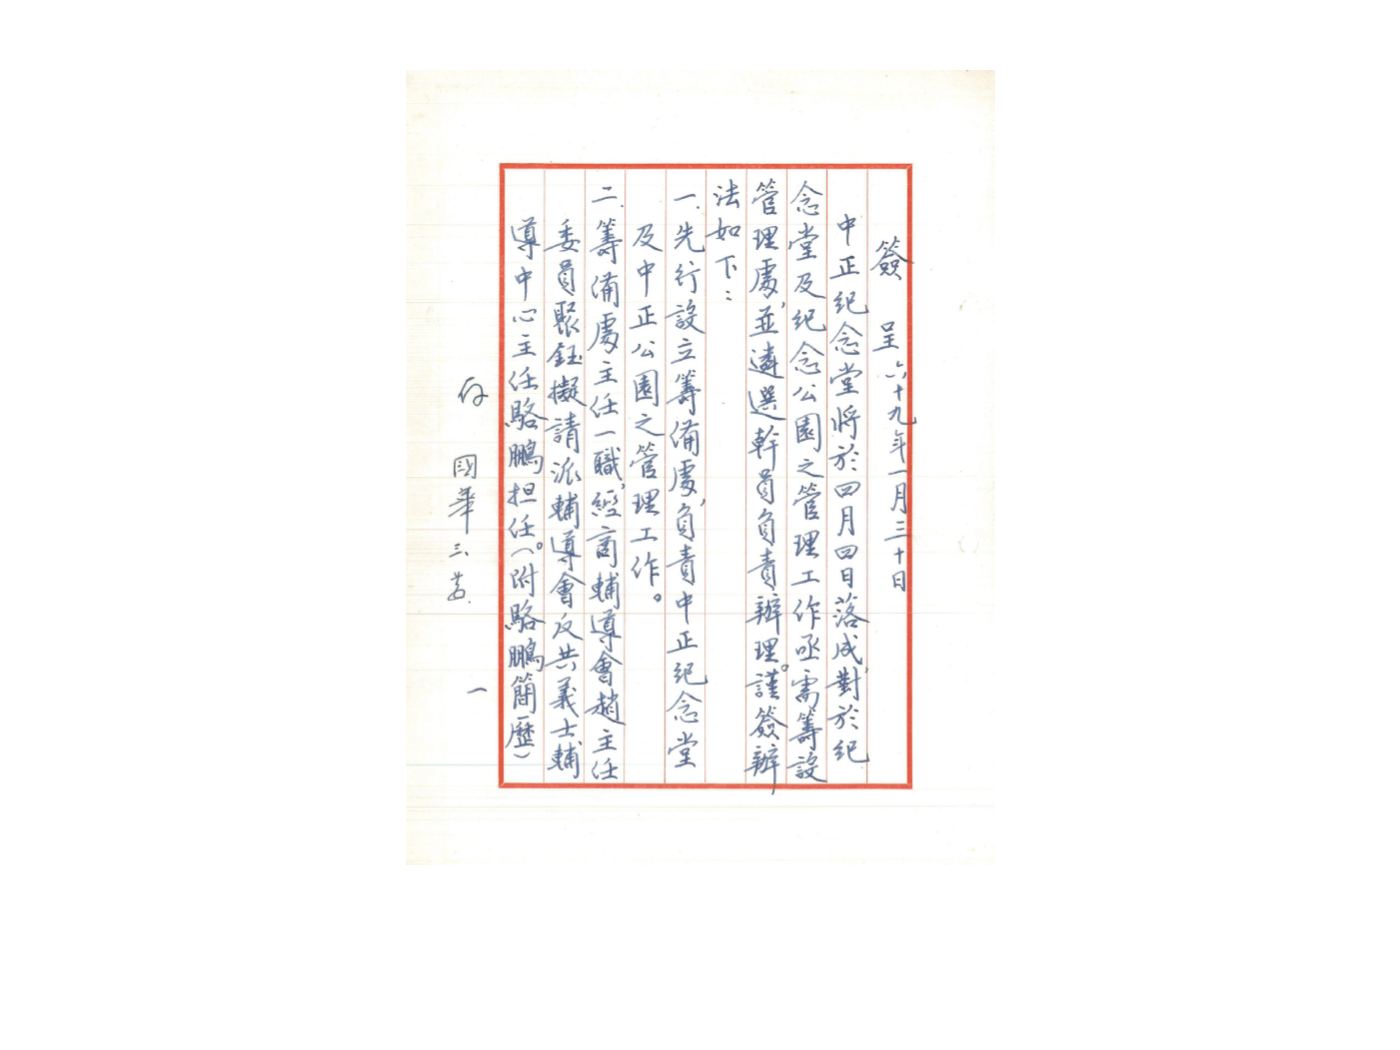 簽 呈 六十九年一月三十日
中正紀念堂將於四月四日落成,對於紀
念堂及紀念公園之管理工作亟需籌設
管理處,並遴選幹員負責辦理。謹簽辦
法如下:
一、先行設立籌備處,負責中正紀念堂
及中正公園之管理工作。
二、籌備處主任一職,經商輔導會趙主任
委員聚鈺擬請派輔導會反共義士輔
導中心主任駱鵬担任。(附駱鵬簡歷)
存
國華 三、
一